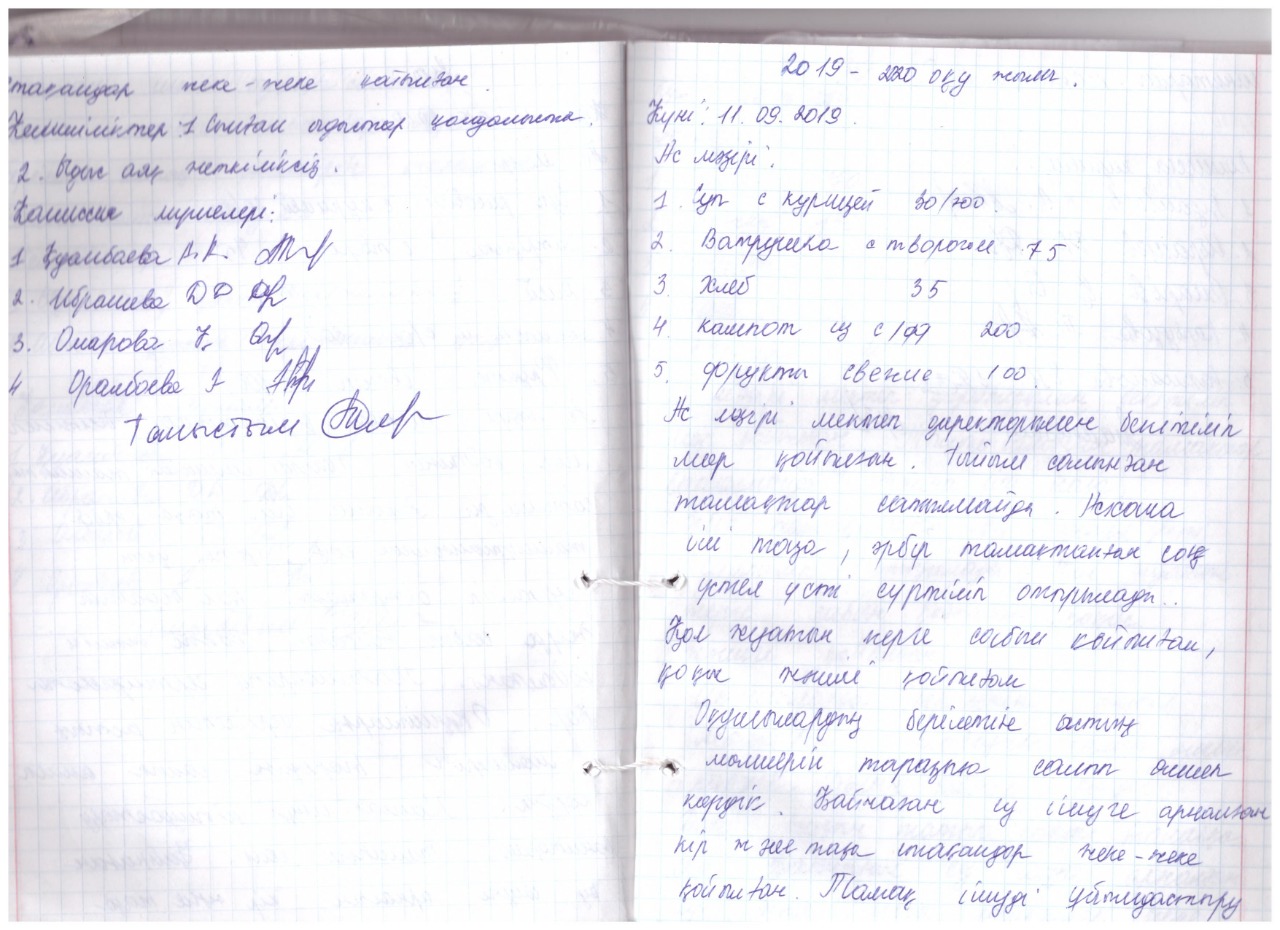 стақандар жеке-жеке қойылған.
Кемшіліктер: 1 Сынған ыдыстар қолданыста.
2. Ыдыс аяқ жеткіліксіз.
Комиссия мүшелері:
1 Қуанбаева А.К.
2. Ибрашева Д
3. Омарова Қ
4 Оралбаева А
Таныстым
2019 - 2020 оқу жылы.
Күні: 11. 09. 2019.
Ас мәзірі.
1. Суп с курицей 30/200.
2. Ватрушка с творогом 75
3. Хлеб 35
4. кампот из с/фр 200
5. фрукты свежие 100.
Ас мәзірі мектеп директорымен бекітіліп
мөр қойылған. Тыйым салынған
тамақтар сатылмайды. Асхана
іші таза, әрбір тамақтанған соң
үстел үсті сүртіліп отырылады..
Қол жуатын жерге сабын қойылған,
қоқыс жәшігі қойылған
Оқушылардың берілетін астың
мөлшерін таразыға салып өлшеп
көрдік. Қайнаған су ішуге арналған
кір және таза стақандар жеке-жеке
қойылған. Тамақ ішуді ұйымдастыру